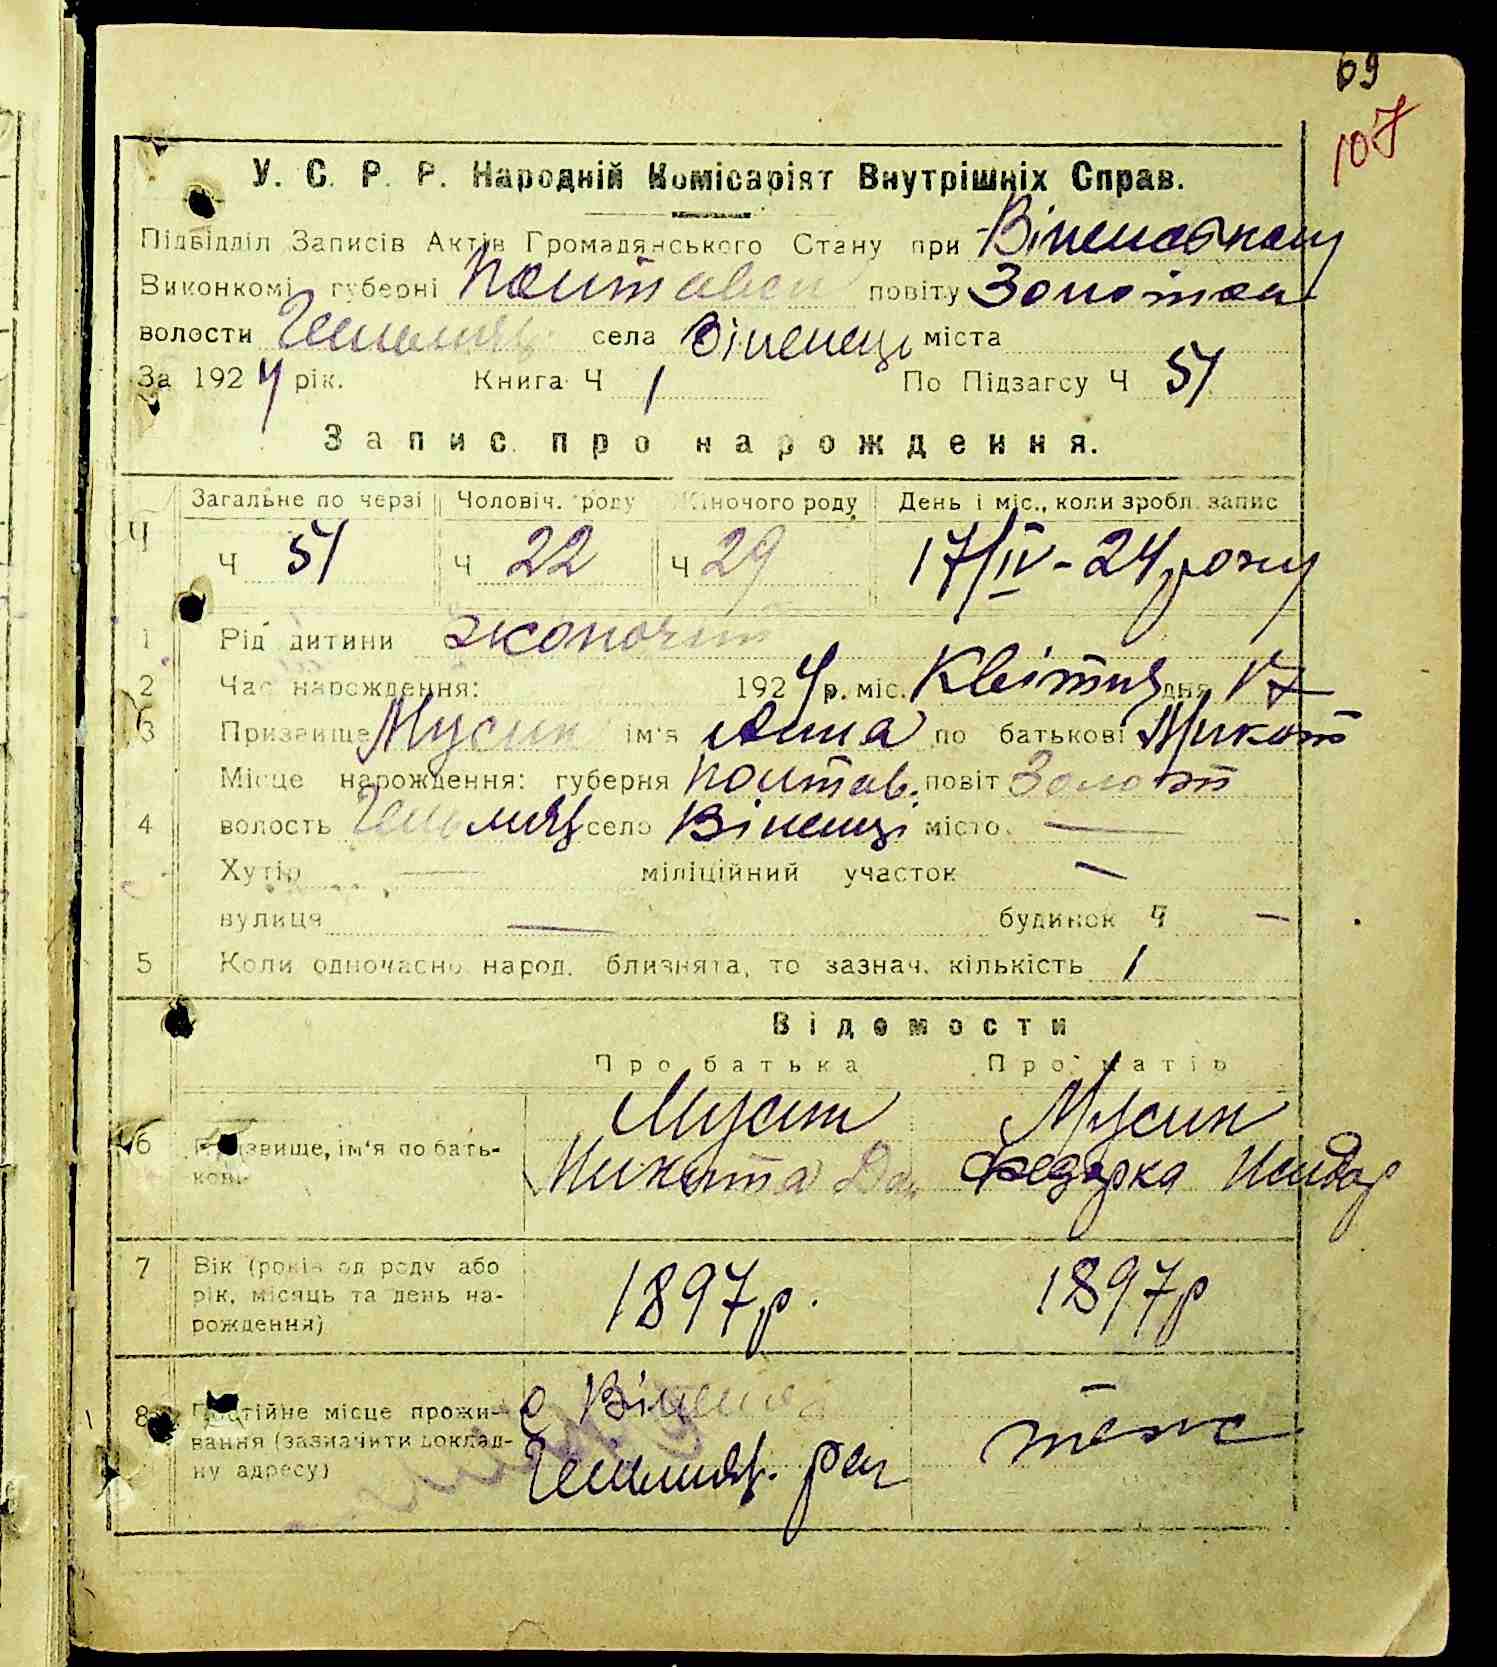 69
107
У. С. Р. Р. Народній Комісаріят Внутрішніх Справ.
Підвідділ Записів Актів Громадянського Стану при
Виконкомі губерні Полтавск повіту Золотон
волости Гельмяз села Віненці міста
За 1924 рік. Книга Ч 1 По Підзагсу Ч 51
Запис про народження.
Ч Загальне по черзі Чоловіч. роду Жіночого роду День і міс., коли зробл. запис
Ч 51 Ч 22 Ч 29 17/IV-24 року
1 Рід дитини
2 Час народження: 1924 р. міс. Квітня дня 17
3 Призвище Мусин ім'я Анна по батькові Микит
Місце народження: губерня Полтав. повіт Золот
4 волость Гельмяз село Віненці місто —
Хутір — міліційний участок —
вулиця — будинок Ч —
5 Коли одночасно народ. близнята, то зазнач. кількість 1
Відомости
Про батька Про матір
Мусин Мусин
6 Призвище, ім'я по бать- Микита Федорка
кові
7 Вік (років од роду або
рік, місяць та день на- 1897р. 1897р
рождення)
8 Постійне місце прожи- с
вання (зазначити доклад- тож
ну адресу) Гельмяз. рай